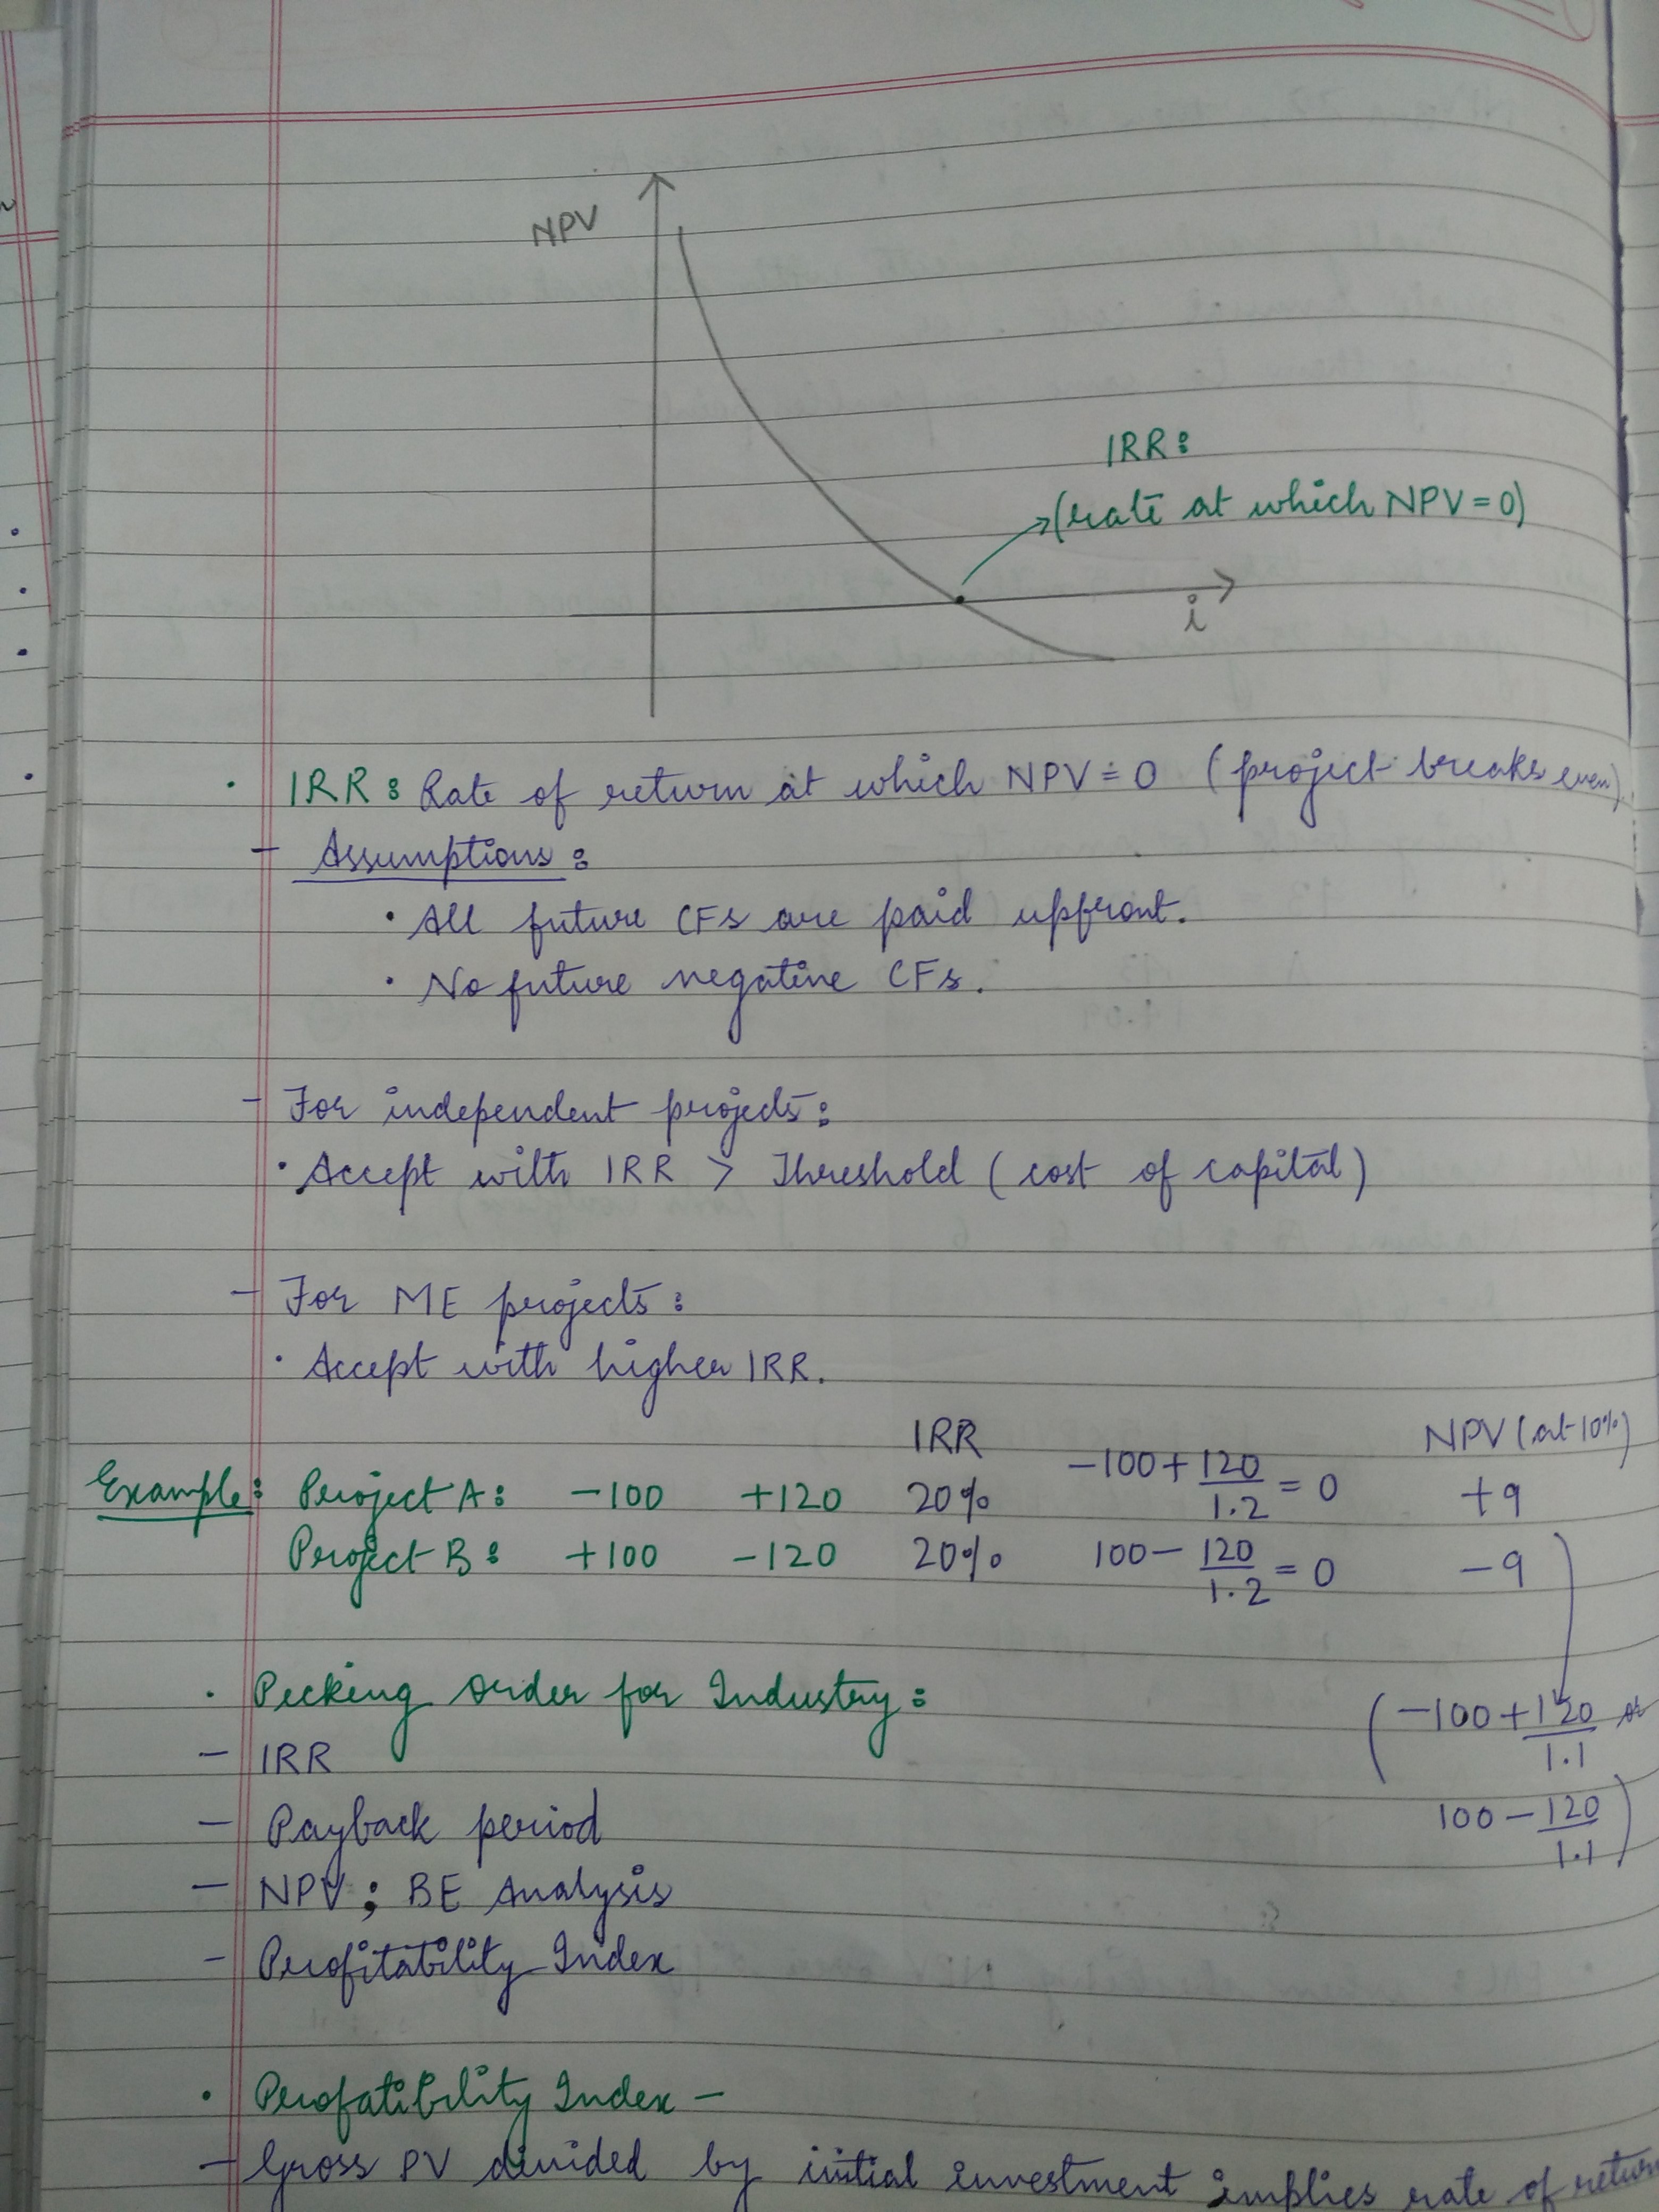 NPV
IRR:
(rate at which NPV = 0)
i
· IRR: Rate of return at which NPV = 0 (project breaks even)
- Assumptions:
· All future CFs are paid upfront.
· No future negative CFs.
- For independent projects:
· Accept with IRR > Threshold (cost of capital)
- For ME projects:
· Accept with higher IRR.
IRR NPV (at 10%)
Example: Project A: -100 +120 20% -100 + 120/1.2 = 0 +9
Project B: +100 -120 20% 100 - 120/1.2 = 0 -9
· Pecking order for Industry:
(-100 + 120/1.1 or
- IRR
- Payback period
100 - 120/1.1)
- NPV ; BE Analysis
- Profitability Index
· Profatibility Index -
- Gross PV divided by initial investment implies rate of return